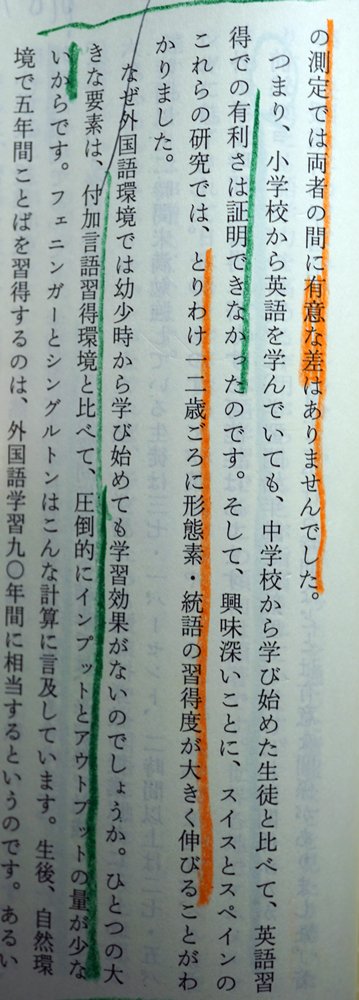 の測定では両者の間に有意な差はありませんでした。
つまり、小学校から英語を学んでいても、中学校から学び始めた生徒と比べて、英語習
得での有利さは証明できなかったのです。そして、興味深いことに、スイスとスペインの
これらの研究では、とりわけ一二歳ごろに形態素・統語の習得度が大きく伸びることがわ
かりました。
なぜ外国語環境では幼少時から学び始めても学習効果がないのでしょうか。ひとつの大
きな要素は、付加言語習得環境と比べて、圧倒的にインプットとアウトプットの量が少な
いからです。フェニンガーとシングルトンはこんな計算に言及しています。生後、自然環
境で五年間ことばを習得するのは、外国語学習九〇年間に相当するというのです。あるい